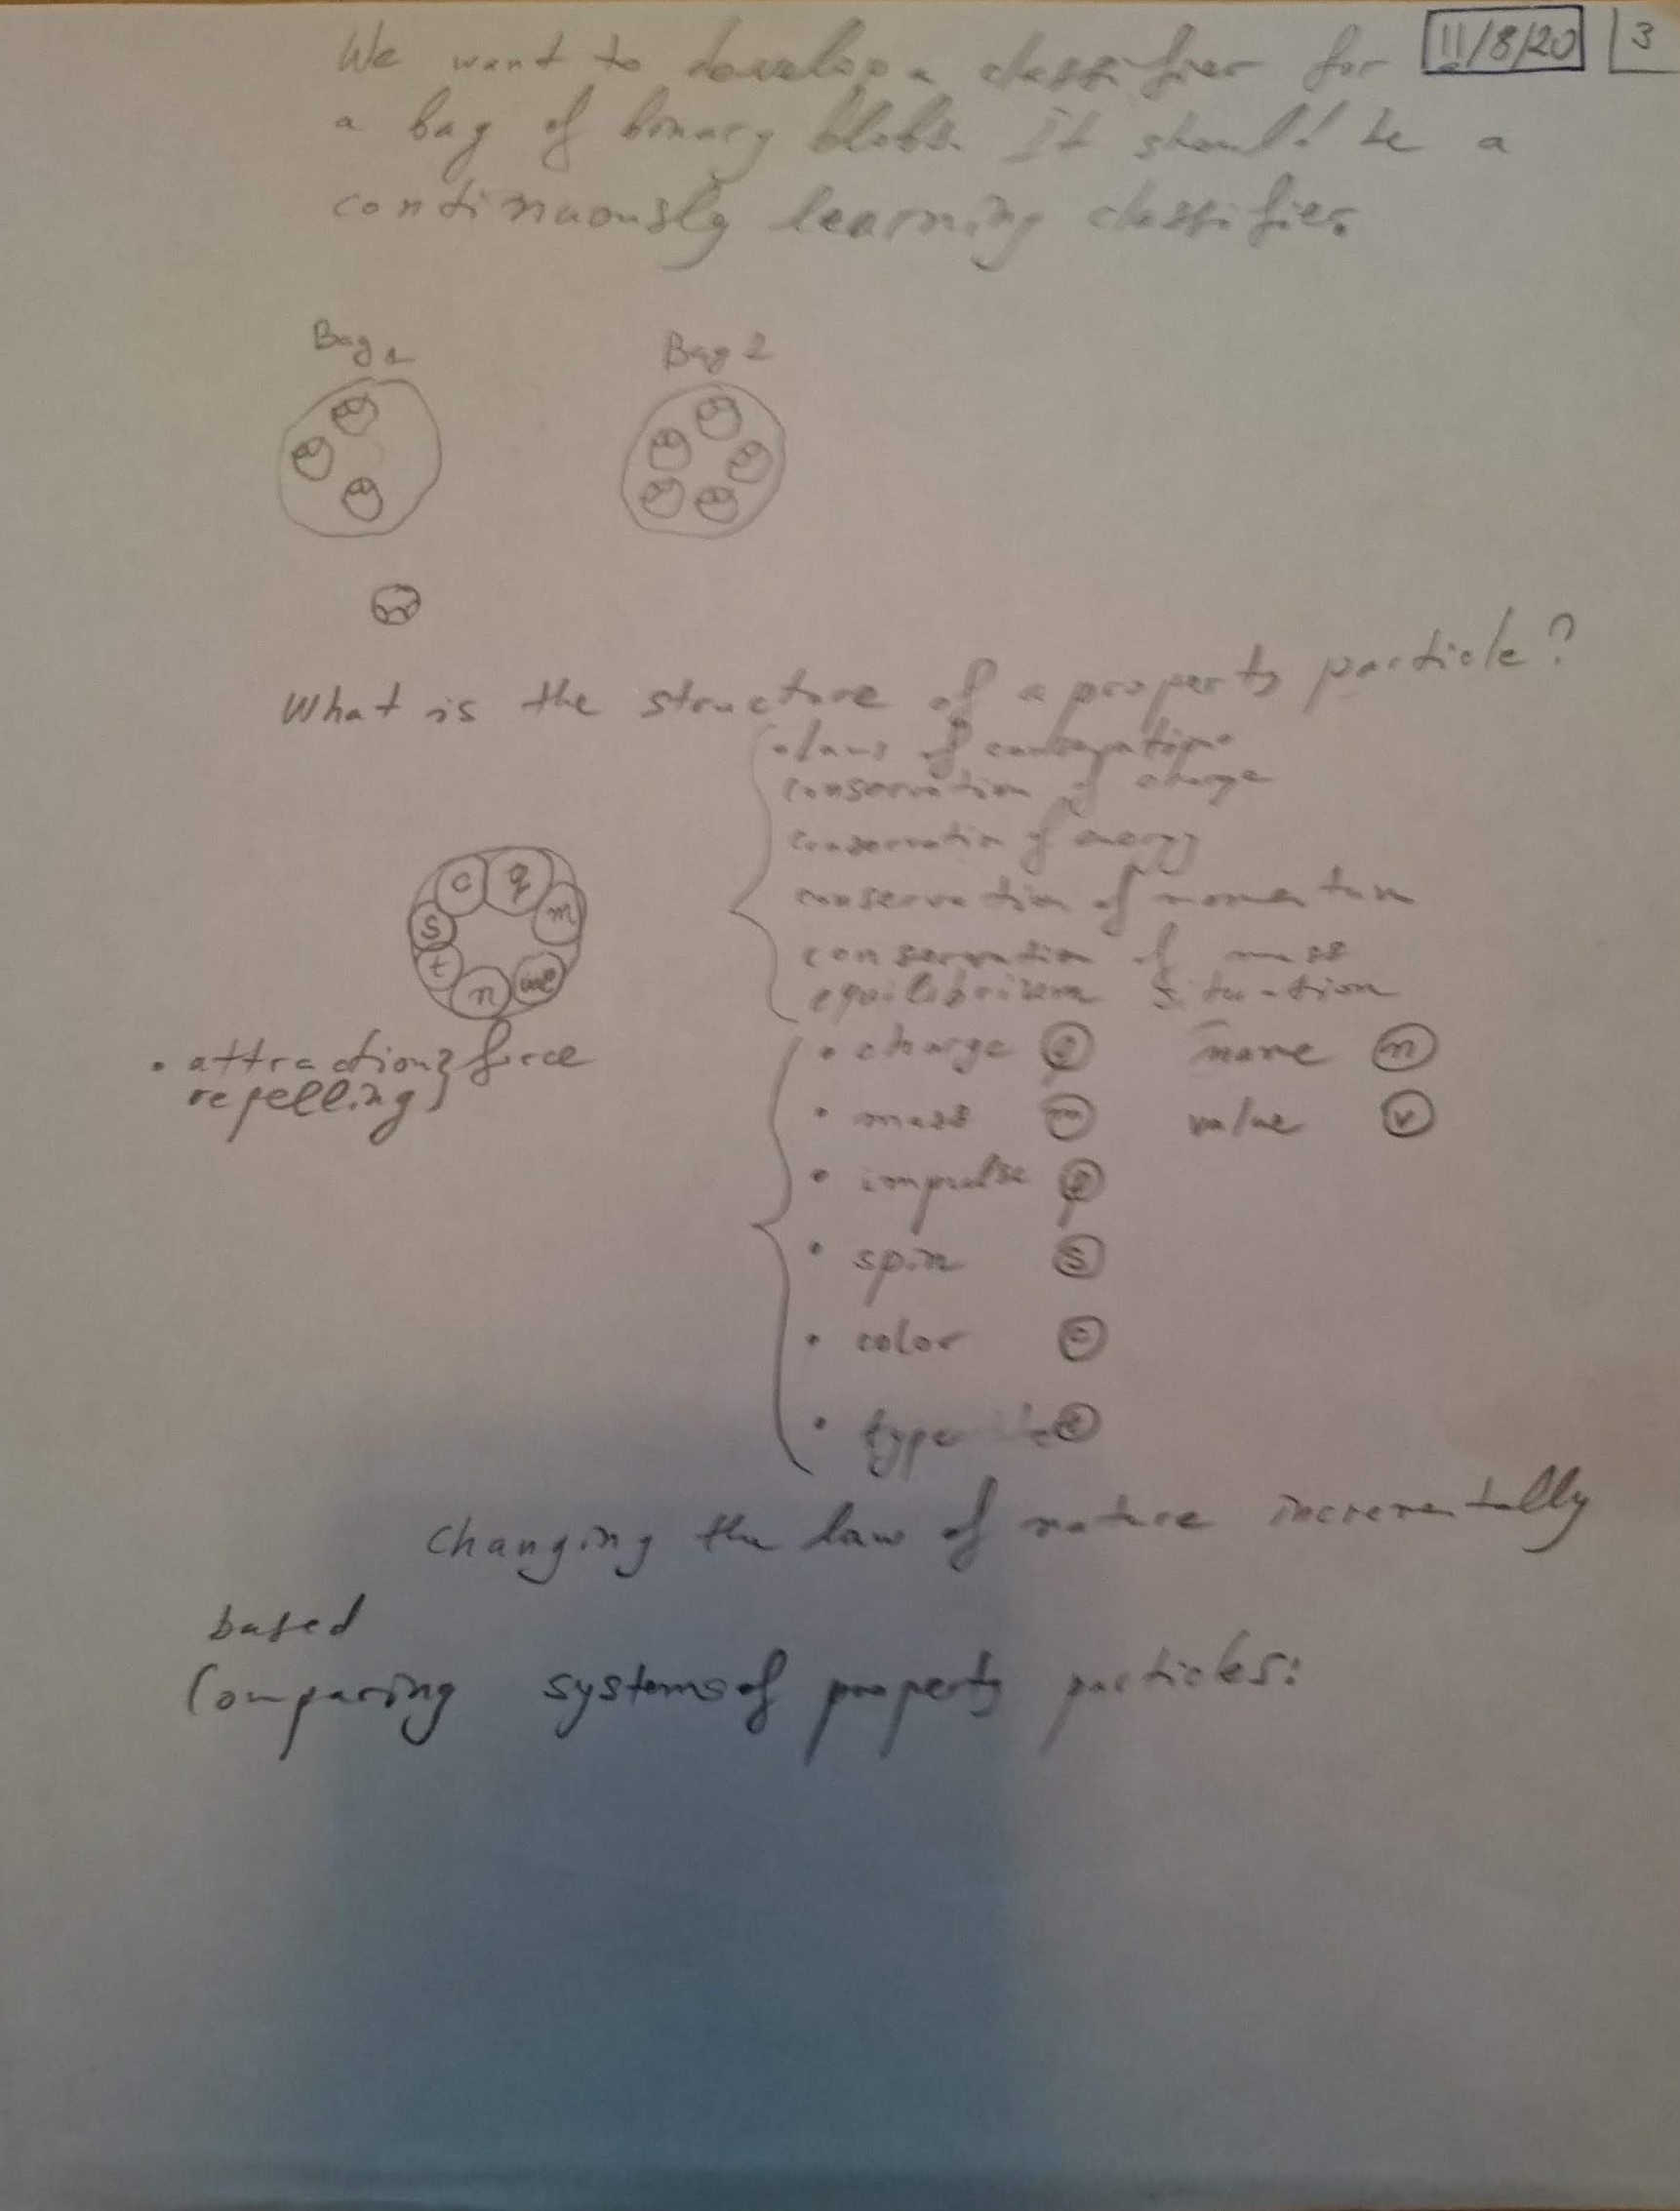 11/8/20 3
We want to develop a classifier for
a bag of binary blobs. It should be a
continuously learning classifier.
Bag 1 Bag 2
What is the structure of a property particle?
• laws of conservation
conservation of charge
conservation of energy
conservation of momentum
conservation of mass
equilibrium situation
c q
s m
t
n
• attraction } force
repelling
• charge q name n
• mass m value v
• impulse p
• spin s
• color c
• type t
Changing the law of nature incrementally
based
Comparing systems of property particles: